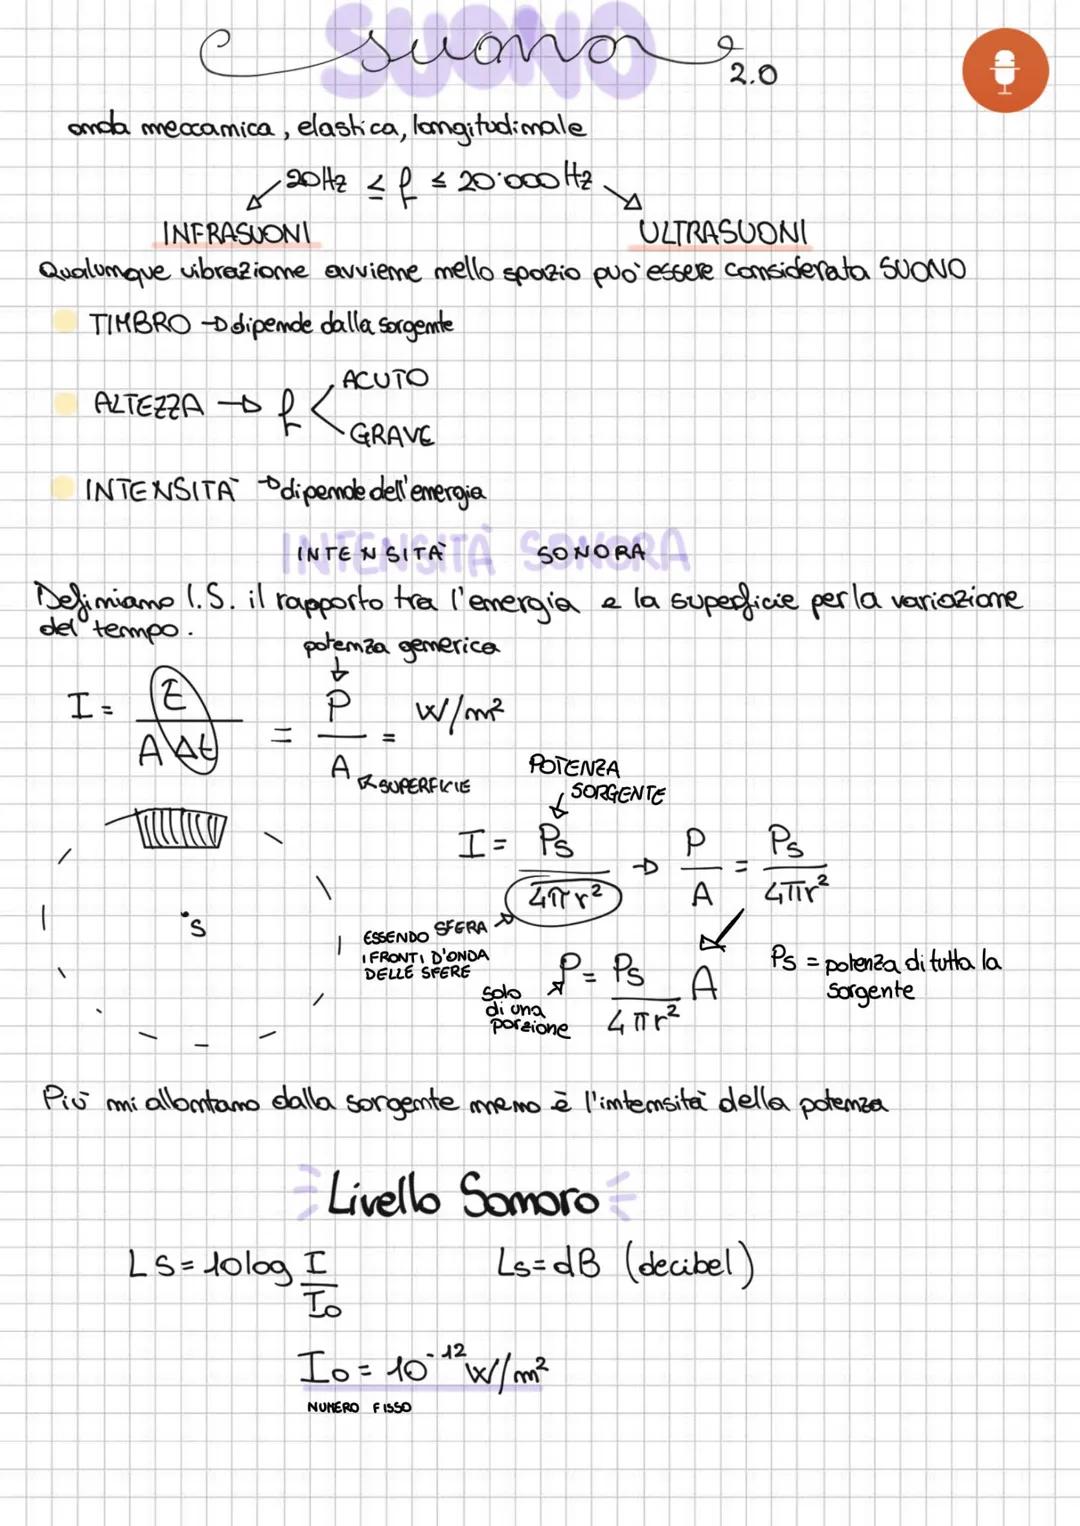 SUONO
suono 2.0
onda meccanica, elastica, longitudinale
20Hz ≤ f ≤ 20'000 Hz
INFRASUONI ULTRASUONI
Qualunque vibrazione avviene nello spazio può essere considerata SUONO
TIMBRO → dipende dalla sorgente
ALTEZZA → f < ACUTO
GRAVE
INTENSITÀ → dipende dell'energia
INTENSITÀ SONORA
INTENSITÀ SONORA
Definiamo I.S. il rapporto tra l'energia e la superficie per la variazione
del tempo.
potenza generica
I = E / A Δt = P / A = W/m²
SUPERFICIE
POTENZA
SORGENTE
I = Ps / 4πr² → P / A = Ps / 4πr²
S
ESSENDO SFERA
I FRONTI D'ONDA
DELLE SFERE
P = Ps / 4πr² A
solo
di una
porzione
Ps = potenza di tutta la
sorgente
Più mi allontano dalla sorgente meno è l'intensità della potenza
Livello Sonoro
LS = 10 log I / I₀
Ls = dB (decibel)
I₀ = 10⁻¹² W/m²
NUMERO FISSO